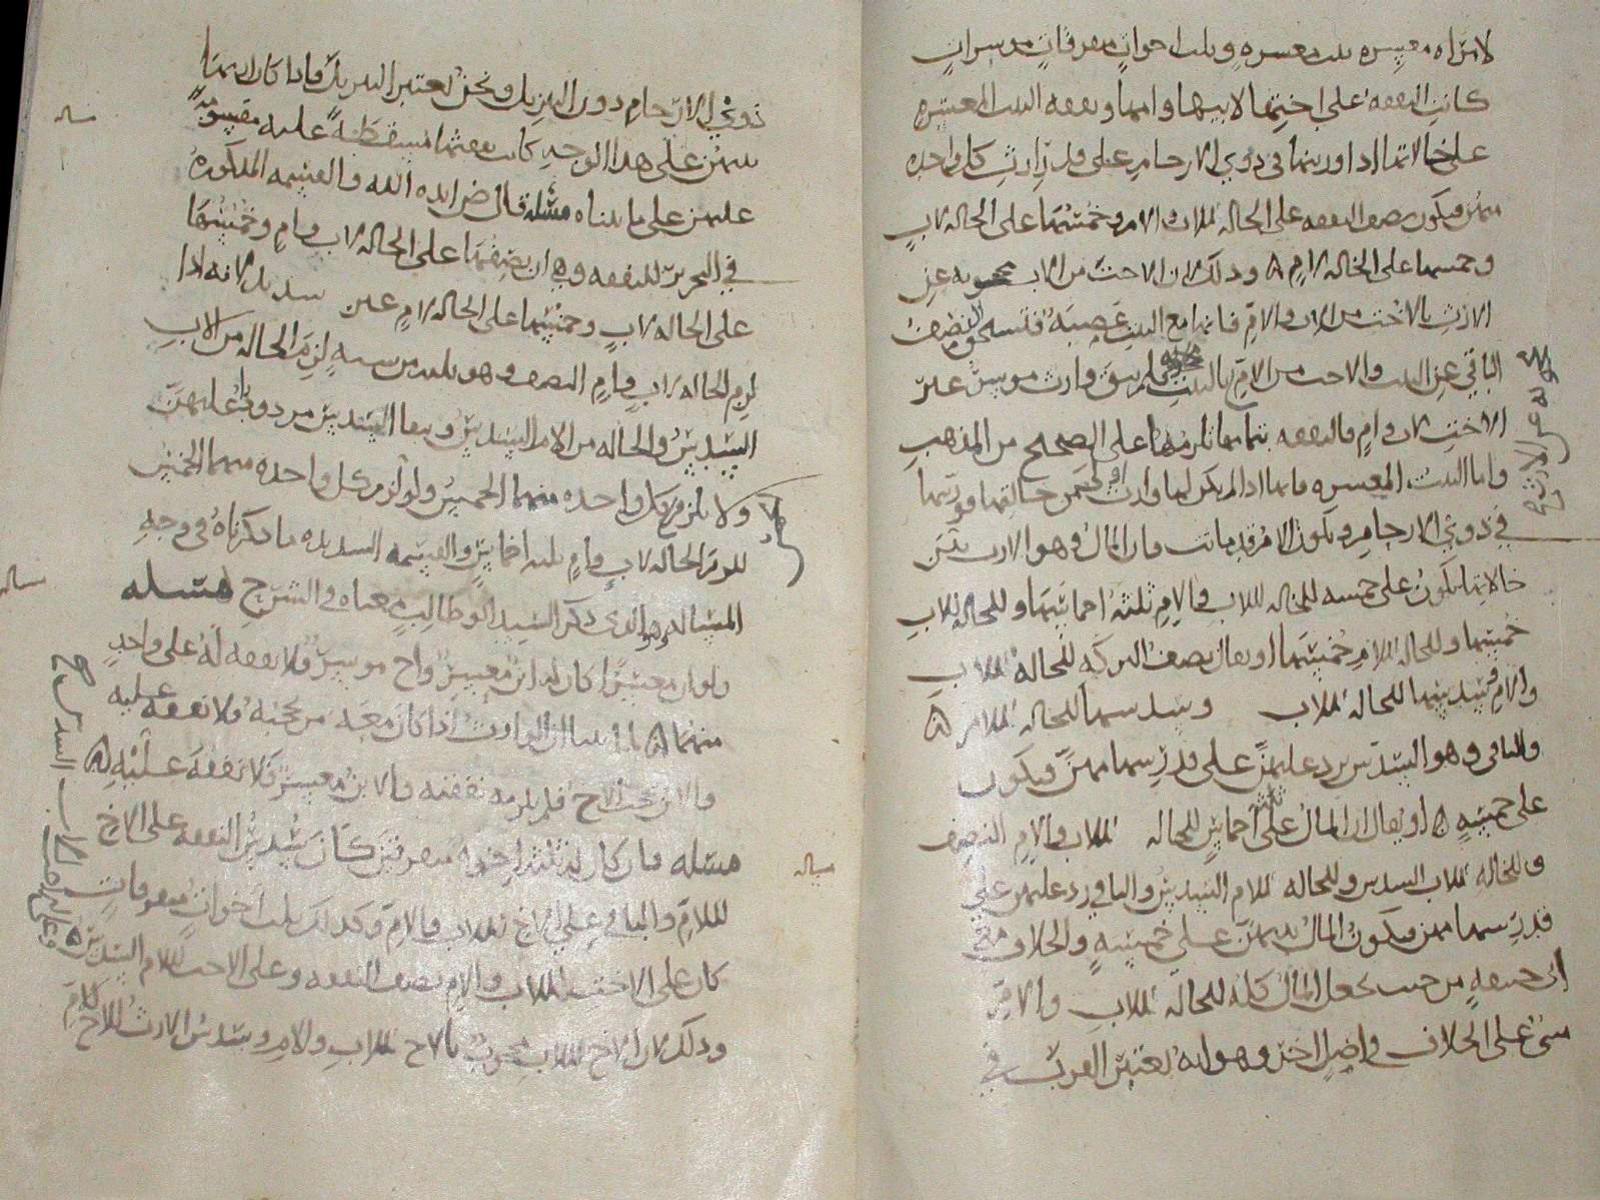 لامراه معسره بنت معسره وثلث اخوات مفرقات موسرات
كانت النفقه على اختها لابيها وامها ونفقه البنت المعسره
على خالاتها اذا ورثنها في ذوي الارحام على قدر ارث كل واحده
منهن فيكون نصف النفقه على الخاله للاب والام وخمسها على الخاله لاب
وخمسها على الخاله لام وذلك لان الاخت من الاب محجوبه عن
الارث بالاخت من الاب والام فانها مع البنت عصبه فتستحق النصف
الباقي عن البنت والاخت من الام بالبنت فلم يبق وارث موسر غير
الاخت لاب وام فالنفقه بتمامها تلزمها على الصحيح من المذهب
واما البنت المعسره فانها اذا لم يكن لها وارث
في ذوي الارحام وتكون الام قد ماتت فان المال وهو الارث بين
خالاتها يكون على خمسه للخاله للاب والام ثلثه اخماسها وللخاله للاب
خمسها وللخاله للام خمسها او يقال نصف التركه للخاله للاب
والام وسدسها للخاله للاب وسدسها للخاله للام
والباقي وهو السدس يرد عليهن على قدر سهامهن فيكون
على خمسه او يقال ان المال على ثلثه اخماس للخاله للاب والام النصف
وللخاله للاب السدس وللخاله للام السدس والباقي رد عليهن على
قدر سهامهن فيكون المال بينهن على خمسه والخلاف مع
ابي حنيفه من حيث يجعل المال كله للخاله للاب والام
مبنى على الخلاف في اصل اخر وهو انه يعتبر القرب في
ذوي الارحام دون التنزيل ونحن نعتبر التنزيل فاذا كان ارثها
بينهن على هذا الوجه كانت نفقتها مقسومه
عليهن على ما بيناه مسله قال ض ايده الله والقسمه المذكوره
في التحرير للنفقه وهي ان نصفها على الخاله لاب وام وخمسها
على الخاله لاب وخمسها على الخاله لام غير سديد لانه اذا
لزم الخاله لاب وام النصف وهو ثلثه من سته لزم الخاله من الاب
السدس والخاله من الام السدس وبقا السدس مردود عليهن
ولا يلزم كل واحده منهما الخمس ولو لزم كل واحده منهما الخمس
للزم الخاله لاب وام ثلثه اخماس والقسمه السديده ما ذكرناه في وجه
المساله وهو الذي ذكر السيد ابو طالب معناه في الشرح مسله
ولو ان معسرا كان له ابن معسر واخ موسر فلا نفقه له على واحد
منهما لما بينا ان الوارث اذا كان معه من يحجبه فلا نفقه عليه
والابن يحجب الاخ فلم يلزمه نفقته والابن معسر فلا نفقه عليه
مسله فان كان له ثلثه اخوه مفرقين كان سدس النفقه على الاخ
للام والباقي على الاخ للاب والام وكذلك ثلث اخوات مفرقات
كان على الاخت للاب والام نصف النفقه وعلى الاخت للام السدس
وذلك لان الاخ للاب محجوب بالاخ للاب والام وسدس الارث للاخ للام
مساله
مساله
مساله